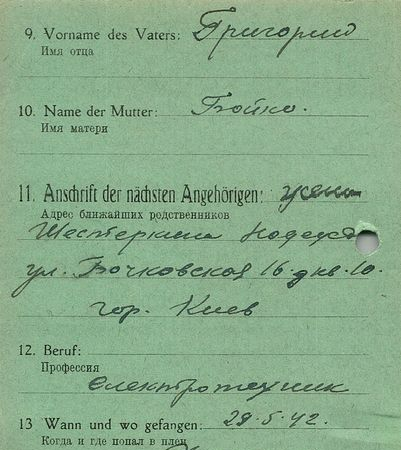 9. Vorname des Vaters: Григорий
Имя отца
10. Name der Mutter: Бойко.
Имя матери
11. Anschrift der nächsten Angehörigen: жена
Адрес ближайших родственников
Шестеркина Надежда
ул. Бочковская 16. д кв. 10.
гор. Киев
12. Beruf:
Профессия
електротехник
13 Wann und wo gefangen: 29.5.42.
Когда и где попал в плен